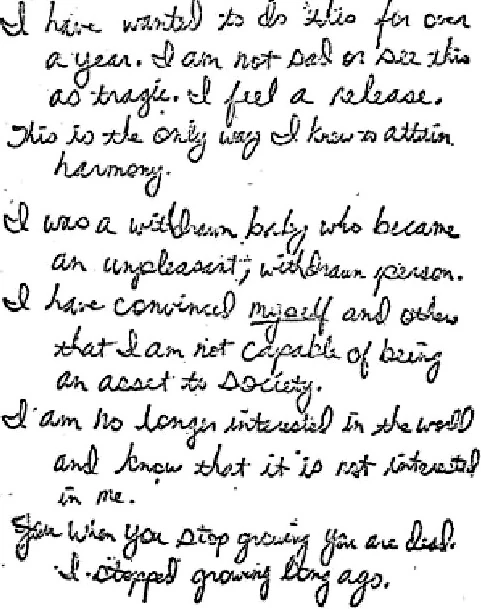 I have wanted to do this for over
a year. I am not sad or see this
as tragic. I feel a release.
This is the only way I know to attain
harmony.
I was a withdrawn baby who became
an unpleasant, withdrawn person.
I have convinced myself and others
that I am not capable of being
an asset to society.
I am no longer interested in the world
and know that it is not interested
in me.
When you stop growing you are dead.
I stopped growing long ago.